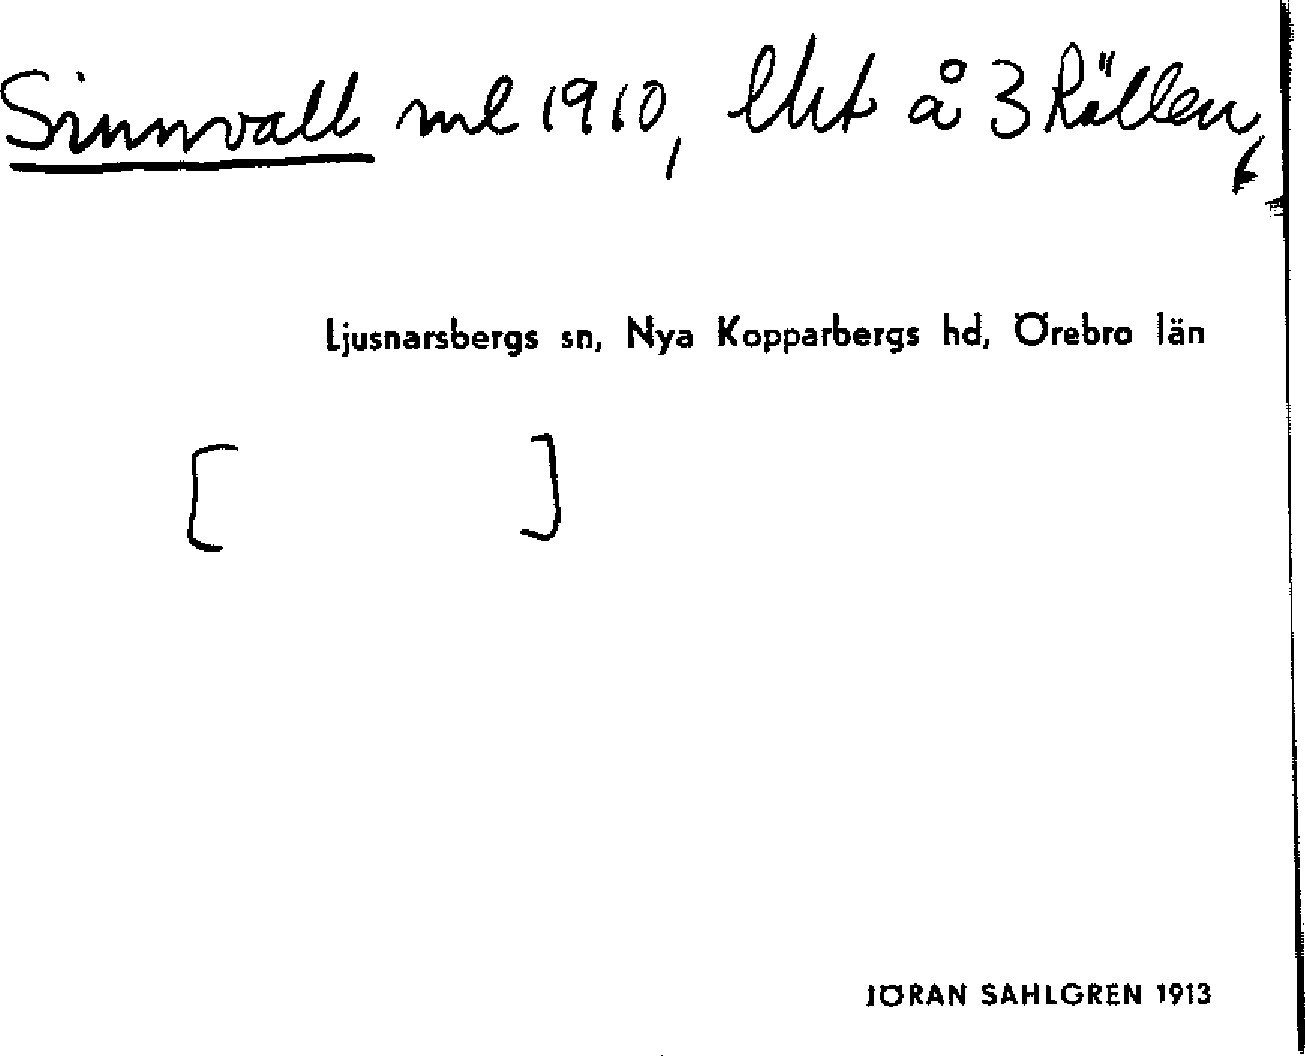 Sinnvall ml 1910, lht å 3 Rällen,
Ljusnarsbergs sn, Nya Kopparbergs hd, Örebro län
[ ]
JÖRAN SAHLGREN 1913